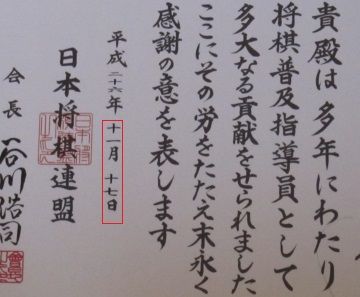 貴殿は多年にわたり
将棋普及指導員として
多大なる貢献をせられました
ここにその労をたたえ末永く
感謝の意を表します
平成二十六年十一月十七日
日本将棋連盟
会長 谷川浩司